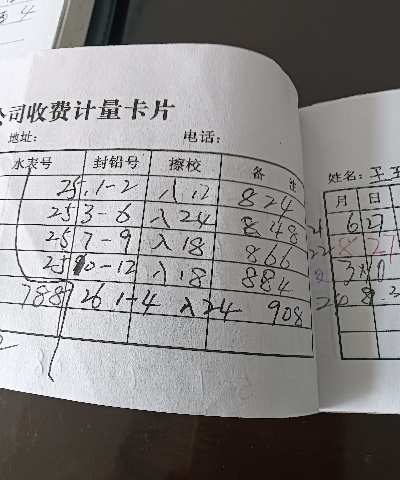 4
公司收费计量卡片
地址： 电话：
水表号 封铅号 擦校 备 注
25.1-2 入12 824
25 3-6 入24 848
25 7-9 入18 866
25 10-12 入18 884
788 26.1-4 入24 908
姓名：王
月 日
6 27
8 21
24 8